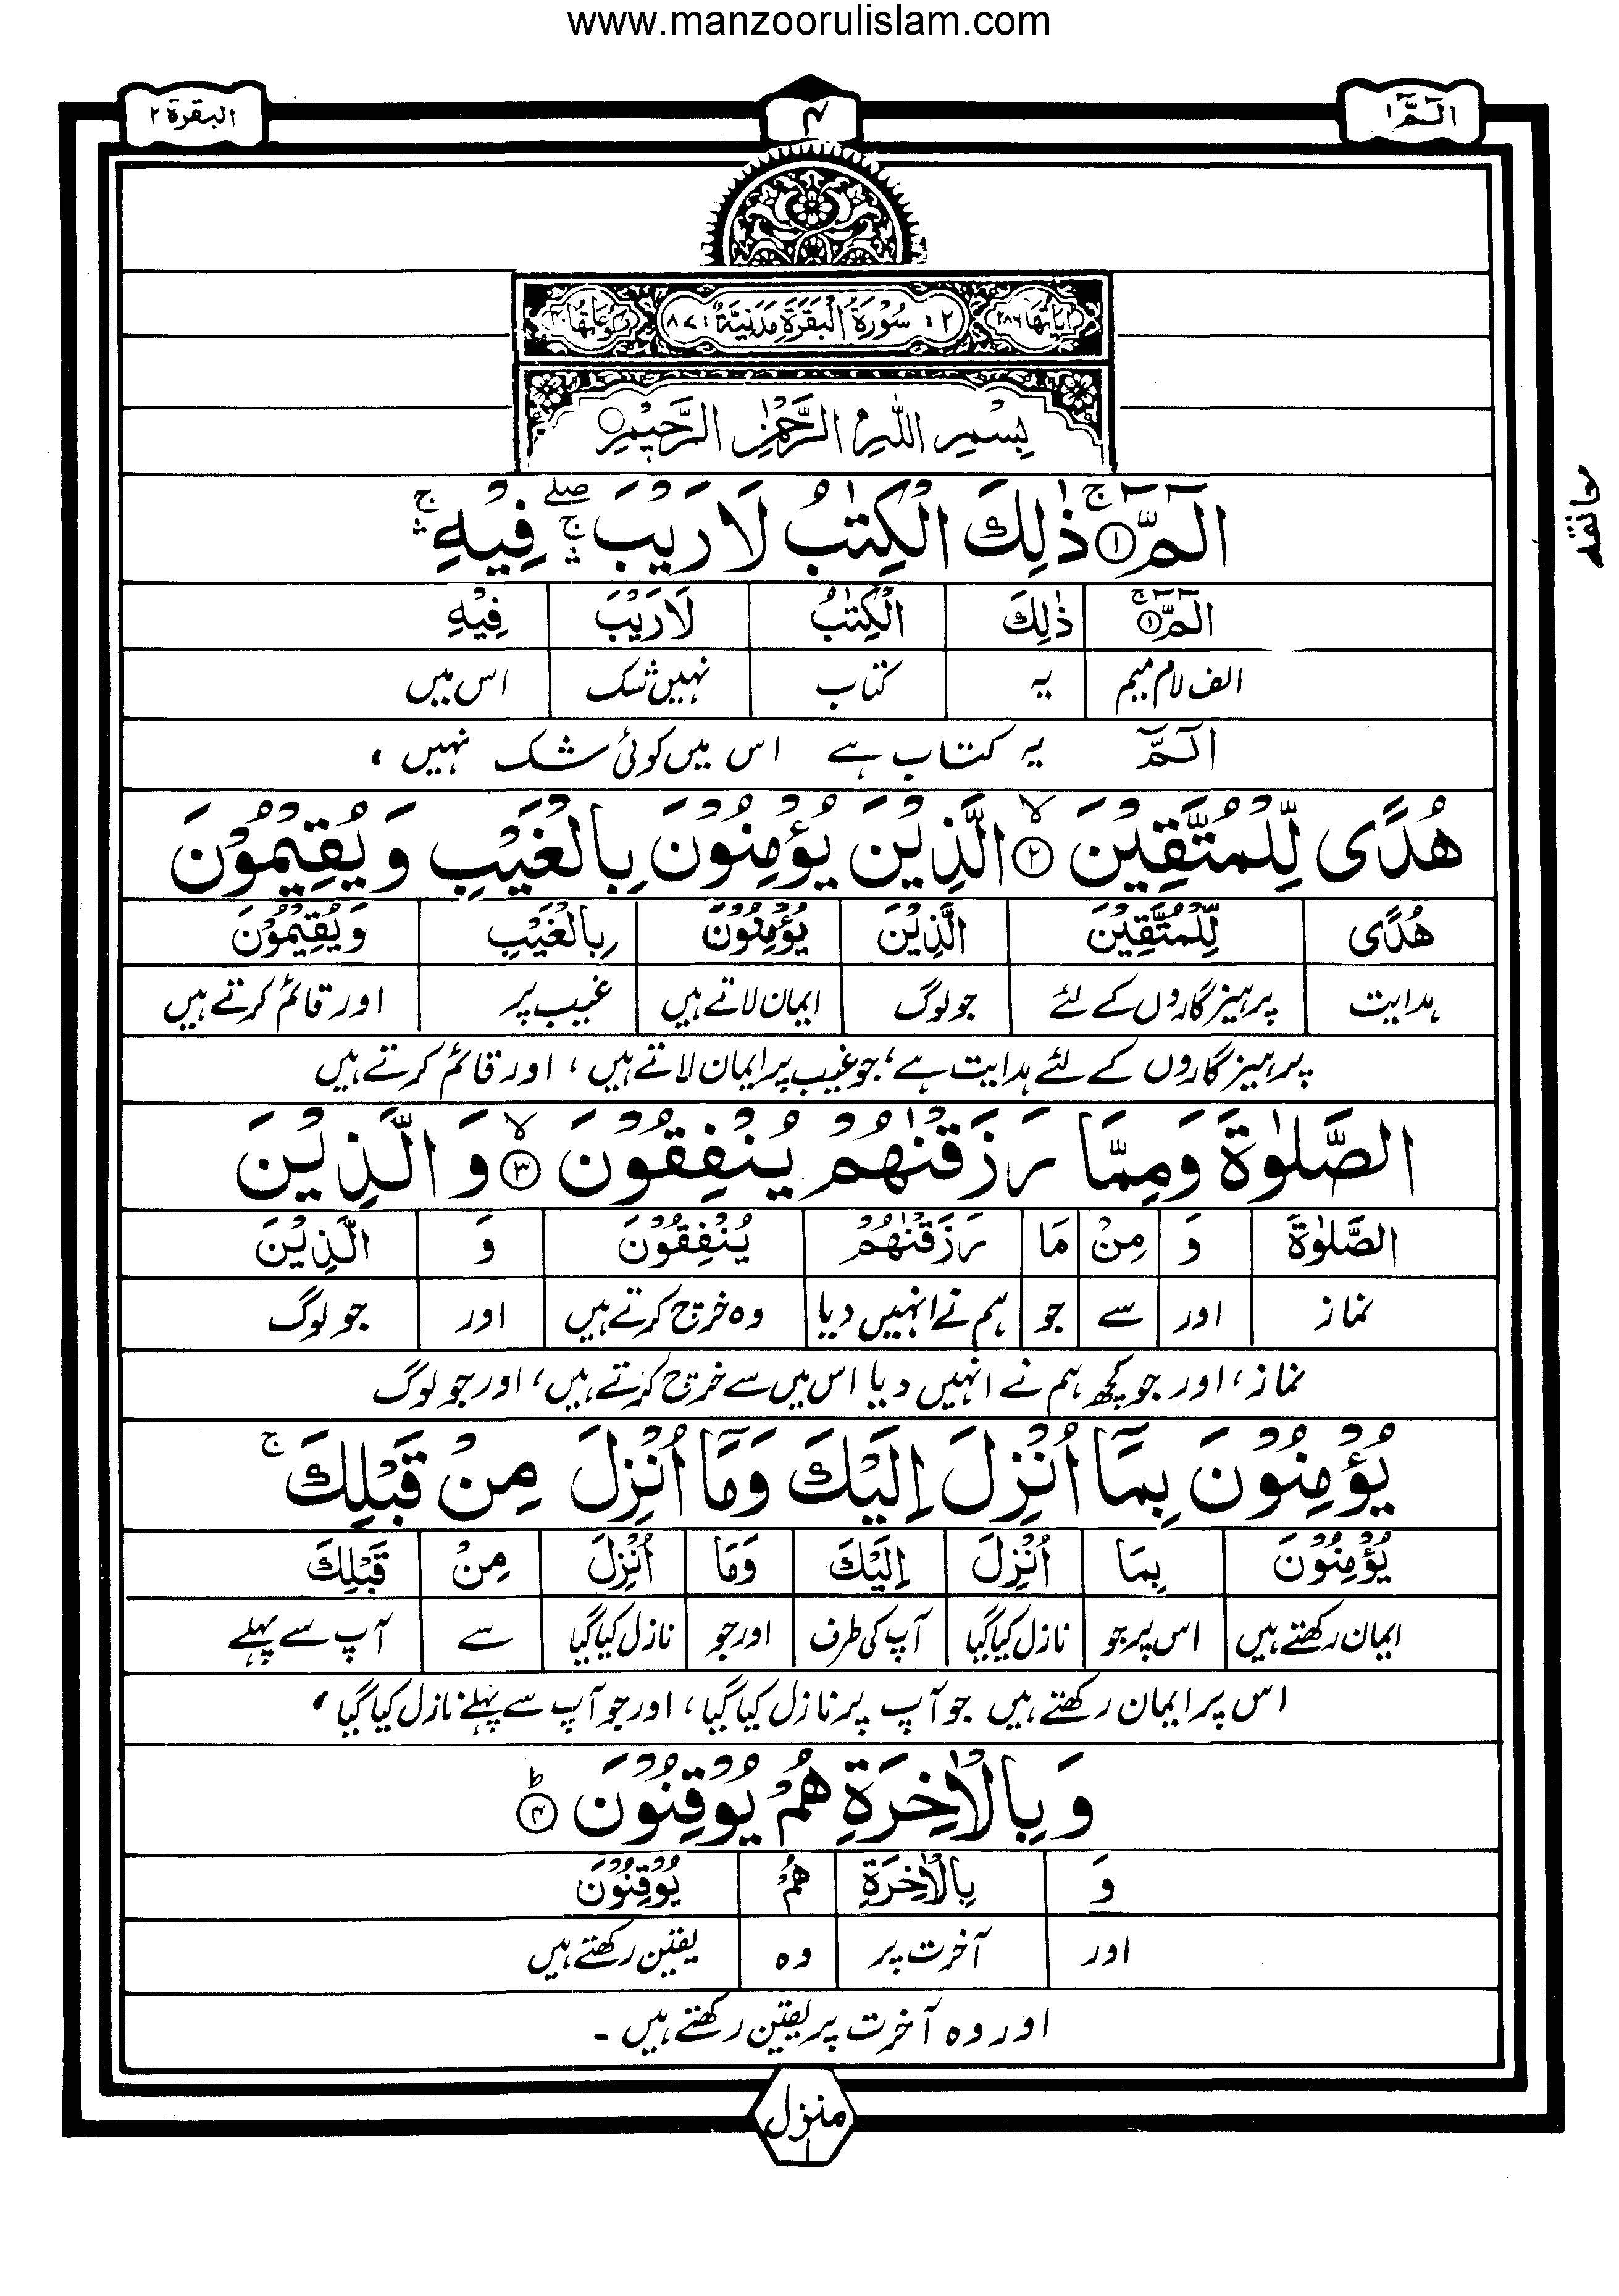 www.manzoorulislam.com
الٓـمّٓ ۱
۴
البقرة ۲
اٰيَاتُهَا ۲۸۶
۲: سُوْرَةُ الْبَقَرَةِ مَدَنِيَّةٌ: ۸۷
رُكُوْعَاتُهَا ۴۰
بِسْمِ اللّٰهِ الرَّحْمٰنِ الرَّحِيْمِ ○
الٓمّٓ ۚ﴿۱﴾ ذٰلِكَ الْكِتٰبُ لَا رَيْبَ ۛۚۖ فِيْهِ ۛۚ
معانقه
الٓمّٓ ۚ﴿۱﴾ ذٰلِكَ الْكِتٰبُ لَا رَيْبَ فِيْهِ
الف لام میم یہ کتاب نہیں شک اس میں
الٓـمّٓ یہ کتاب ہے اس میں کوئی شک نہیں ،
هُدًى لِّلْمُتَّقِيْنَ ۙ﴿۲﴾ الَّذِيْنَ يُؤْمِنُوْنَ بِالْغَيْبِ وَيُقِيْمُوْنَ
هُدًى لِّلْمُتَّقِيْنَ الَّذِيْنَ يُؤْمِنُوْنَ بِالْغَيْبِ وَيُقِيْمُوْنَ
ہدایت پرہیزگاروں کے لئے جو لوگ ایمان لاتے ہیں غیب پر اور قائم کرتے ہیں
پرہیزگاروں کے لئے ہدایت ہے، جو غیب پر ایمان لاتے ہیں ، اور قائم کرتے ہیں
الصَّلٰوةَ وَمِمَّا رَزَقْنٰهُمْ يُنْفِقُوْنَ ۙ﴿۳﴾ وَ الَّذِيْنَ
الصَّلٰوةَ وَ مِنْ مَا رَزَقْنٰهُمْ يُنْفِقُوْنَ وَ الَّذِيْنَ
نماز اور سے جو ہم نے انہیں دیا وہ خرچ کرتے ہیں اور جو لوگ
نماز، اور جو کچھ ہم نے انہیں دیا اس میں سے خرچ کرتے ہیں، اور جو لوگ
يُؤْمِنُوْنَ بِمَآ اُنْزِلَ اِلَيْكَ وَمَآ اُنْزِلَ مِنْ قَبْلِكَ ۚ
يُؤْمِنُوْنَ بِمَا اُنْزِلَ اِلَيْكَ وَمَا اُنْزِلَ مِنْ قَبْلِكَ
ایمان رکھتے ہیں اس پر جو نازل کیا گیا آپ کی طرف اور جو نازل کیا گیا سے آپ سے پہلے
اس پر ایمان رکھتے ہیں جو آپ پر نازل کیا گیا، اور جو آپ سے پہلے نازل کیا گیا ،
وَ بِالْاٰخِرَةِ هُمْ يُوْقِنُوْنَ ؕ﴿۴﴾
وَ بِالْاٰخِرَةِ هُمْ يُوْقِنُوْنَ
اور آخرت پر وہ یقین رکھتے ہیں
اور وہ آخرت پر یقین رکھتے ہیں ۔
منزل ۱